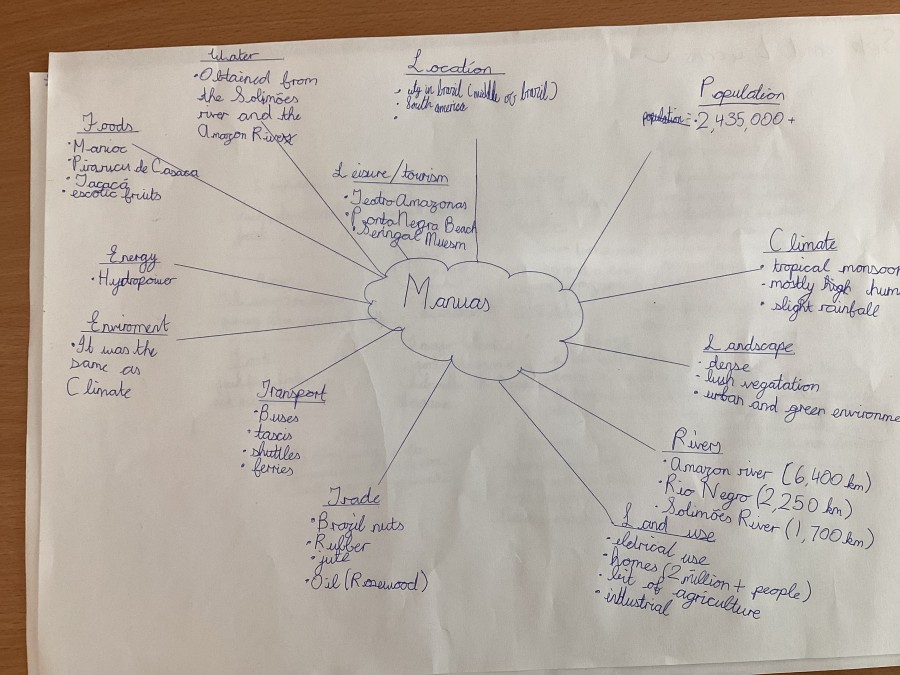 Water
• Obtained from
the Solimões
river and the
Amazon River
Location
in brazil (middle of brazil)
• South america
•
Population
population = • 2,435,000 +
Foods
• Manioc
• Pirarucu de Casaca
• Tacacá
• escotic fruits
Leisure/tourism
• Teatro Amazonas
• Ponta Negra Beach
• Seringal Muesm
Energy
• Hydropower
Climate
• tropical monsoon
• mostly high hum
• slight rainfall
Manuas
Enviroment
• It was the
same as
Climate
Landscape
• dense
• lush vegatation
• urban and green environme
Transport
• Buses
• taxis
• shuttles
• ferries
Rivers
• Amazon river (6,400 km)
• Rio Negro (2,250 km)
• Solimões River (1,700 km)
Trade
• Brazil nuts
• Rubber
• jute
• Oil (Rosewood)
Land use
• eletrical use
• homes (2 million + people)
• bit of agriculture
• industrial